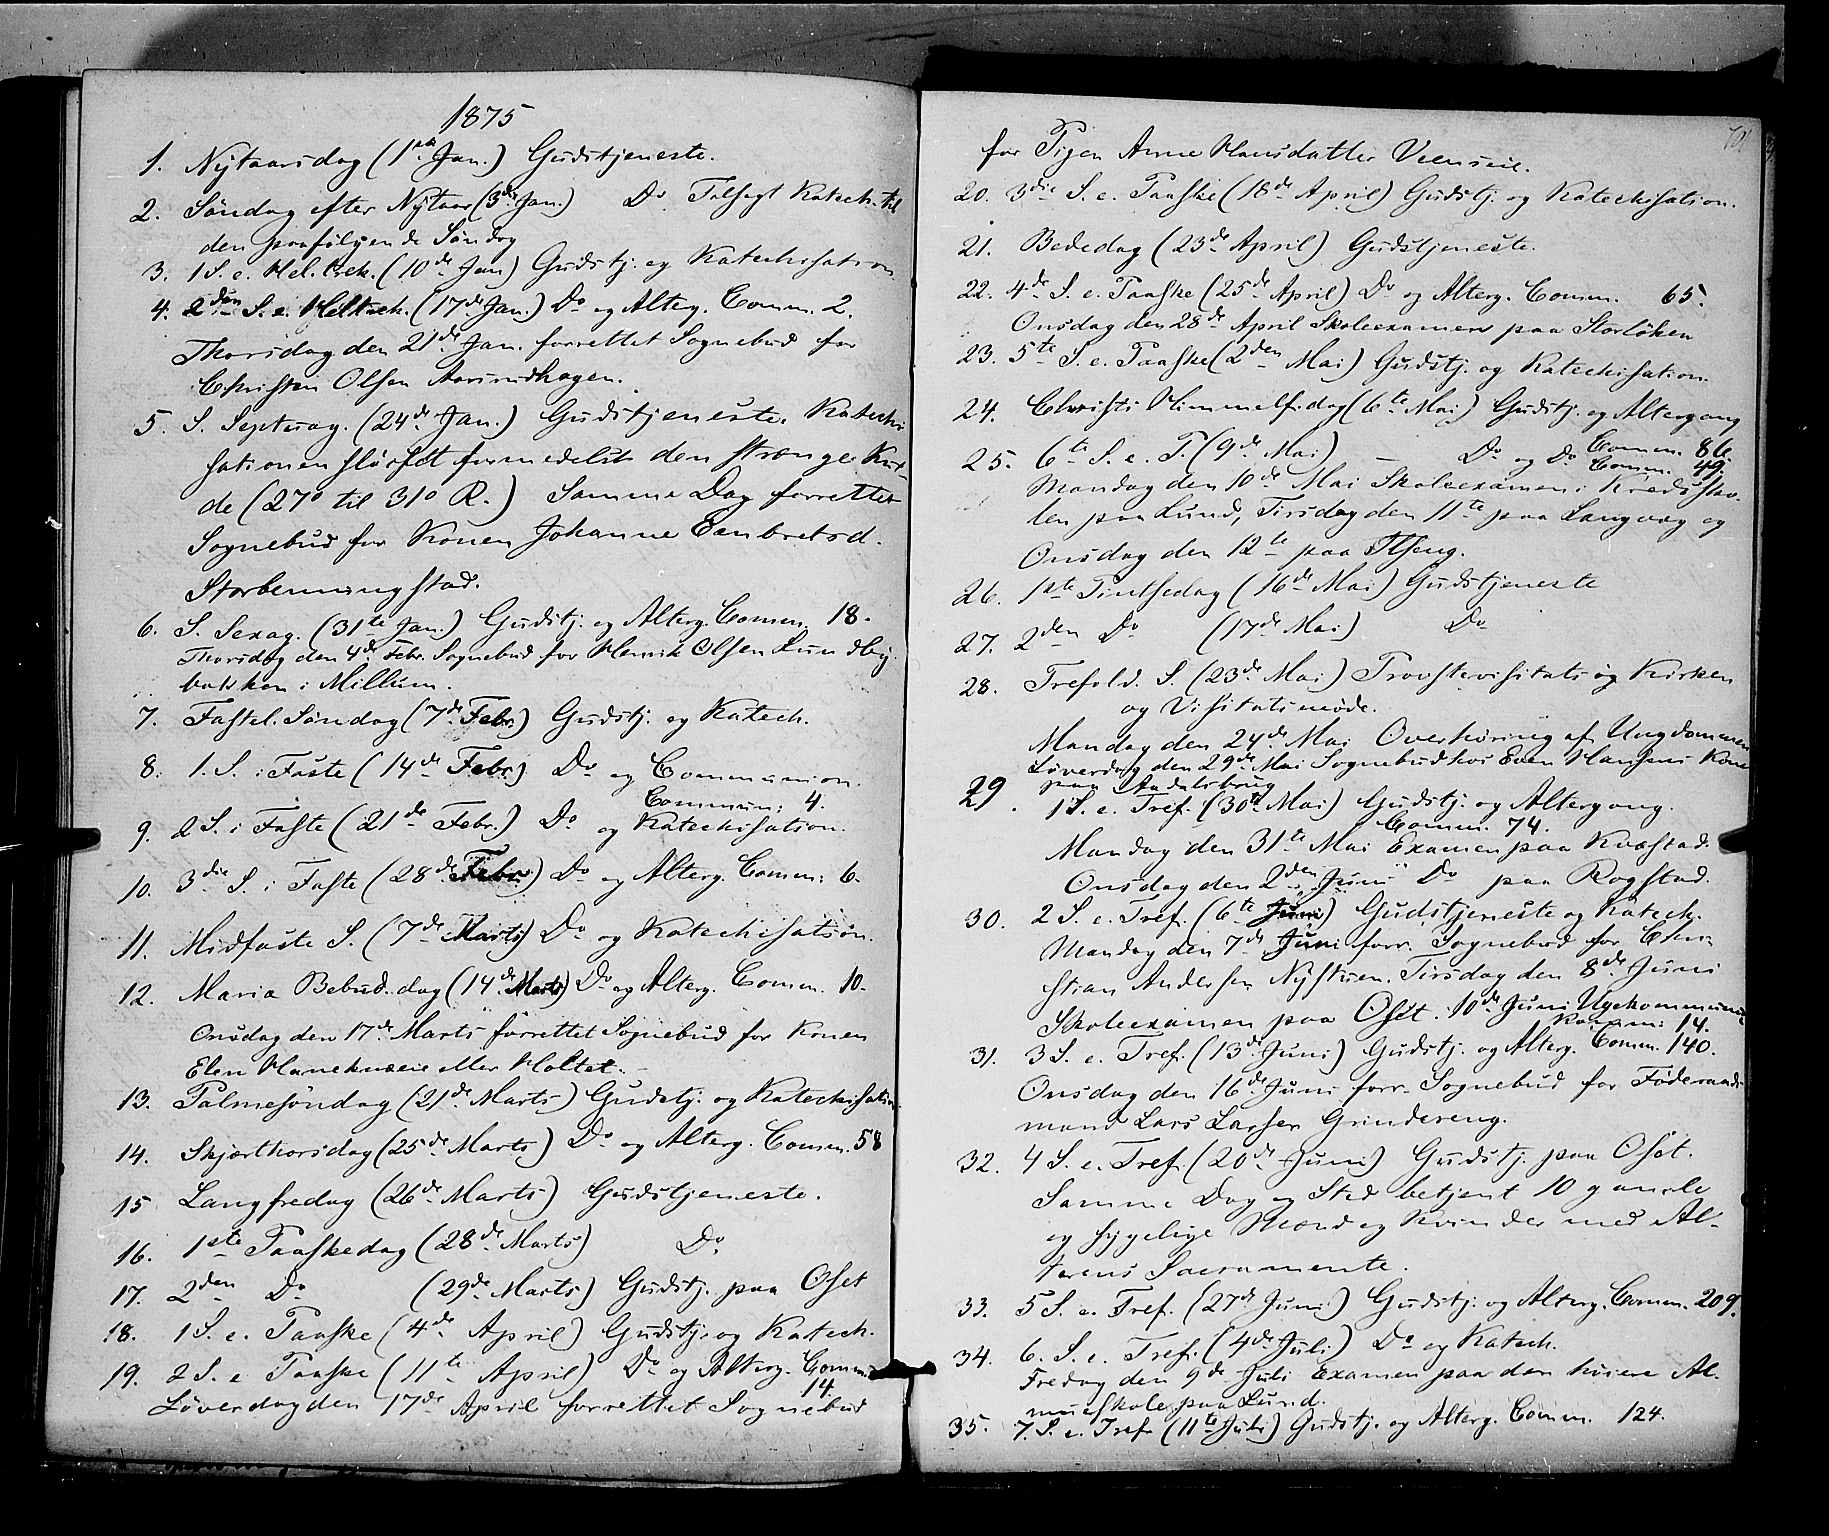 1875
1. Nytaarsdag (1ste Jan.) Gudstjeneste.
2. Søndag efter Nytaar (3die Jan.) Do Tilsagt Katech. til
den paafølgende Søndag
3. 1 S. e. Hel. 3 K. (10de Jan) Gudstj. og Katechisation
4. 2den S. e. Hell. 3 K. (17de Jan.) Do og Alterg. Comm. 2.
Thorsdag den 21de Jan. forrettet Sognebud for
Christen Olsen Aasrudhagen.
5. S. Septuag. (24de Jan.) Gudstjeneste. Katechi
sationen sløifet formedelst den strænge Kul-
de (27° til 31° R.) Samme Dag forrettet
Sognebud for Konen Johanne Embretsd.
Storbenningstad.
6. S. Sexag. (31te Jan.) Gudstj. og Alterg. Comm. 18.
Thorsdag den 4de Febr. Sognebud for Henrik Olsen Lundby
bakken i Millum.
7. Fastel. Søndag (7de Febr.) Gudstj. og Katech.
8. 1. S. i Faste (14de Febr.) Do og Communion.
Commun: 4.
9. 2 S. i Faste (21de Febr.) Do og Katechisation.
10. 3die S. i Faste (28de Febr.) Do og Alterg. Comm: 6.
11. Midfaste S. (7de Marts) Do og Katechisation.
12. Maria Bebud. dag (14de Marts) Do og Alterg. Comm. 10.
Onsdag den 17de Marts forrettet Sognebud for Konen
Elen eller Holtet.
13. Palmesøndag (21de Marts) Gudstj. og Katechisation
14. Skjærthorsdag (25de Marts) Do og Alterg. Comm. 58
15 Langfredag (26de Marts) Gudstjeneste.
16. 1ste Paaskedag (28de Marts) Do
17. 2den Do (29de Marts) Gudstj. paa Oset
18. 1 S. e. Paaske (4de April) Gudstj. og Katech.
19. 2 S. e. Paaske (11te April) Do og Alterg. Comm:
14.
Løverdag den 17de April forrettet Sognebud
for Pigen Anne Hansdatter Veenseie.
20. 3die S. e. Paaske (18de April) Gudstj. og Katechisation.
21. Bededag (23de April) Gudstjeneste.
22. 4de S. e. Paaske (25de April) Do og Alterg. Comm. 65.
Onsdag den 28de April Skoleexamen paa Storløken
23. 5te S. e. Paaske (2den Mai) Gudstj. og Katechisation.
24. Christi Himmelf. dag (6te Mai) Gudstj. og Altergang
Comm. 86.
25. 6te S. e. P. (9de Mai) — Do og Do Comm. 49.
Mandag den 10de Mai Skoleexamen i Kredssko-
len paa Lund, Tirsdag den 11te paa Langvag og
Onsdag den 12te paa Ilseng.
26. 1ste Pintsedag (16de Mai) Gudstjeneste
27. 2den Do (17de Mai) Do
28. Trefold. S. (23de Mai) Provstevisitats og Kirken
og Visitatsmøde.
Mandag den 24de Mai Overhøring af Ungdommen
Løverdag den 29de Mai Sognebud hos Even Hansens Kone
paa Aadalsbrug
29. 1 S. e. Tref. (30te Mai) Gudstj. og Altergang.
Comm. 74.
Mandag den 31te Mai Examen paa Kvæstad.
Onsdag den 2den Juni Do paa Rogstad.
30. 2 S. e. Tref. (6te Juni) Gudstjeneste og Katech.
Mandag den 7de Juni forr. Sognebud for Chri-
stian Andersen Nystuen. Tirsdag den 8de Juni
Skoleexamen paa Oset. 10de Juni Ugekommunion
Komm: 14.
31. 3 S. e. Tref. (13de Juni) Gudstj. og Alterg. Comm. 140.
Onsdag den 16de Juni forr. Sognebud for Føderaads-
mand Lars Larsen Grindereng.
32. 4 S. e. Tref. (20de Juni) Gudstj. paa Oset.
Samme Dag og Sted betjent 10 gamle
og sygelige Mænd og Kvinder med Al-
terens Sacramente.
33. 5 S. e. Tref. (27de Juni) Gudstj. og Alterg. Comm. 209.
34. 6. S. e. Tref. (4de Juli) Do og Katech.
Fredag den 9de Juli Examen paa den høiere Al-
mueskole paa Lund.
35. 7. S. e. Tref. (11te Juli) Gudstj. og Alterg. Comm. 124.